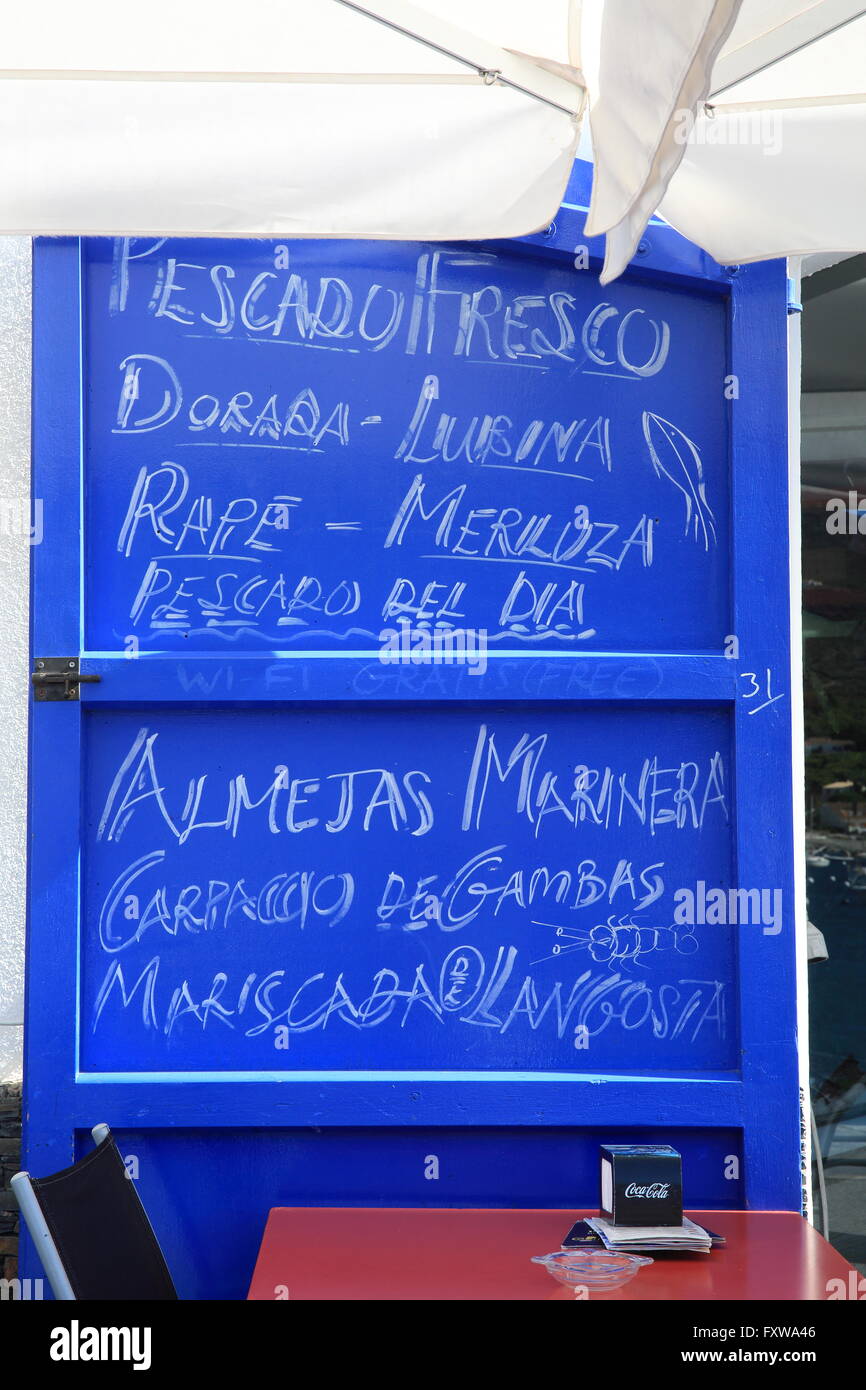 PESCADO FRESCO
DORADA - LUBINA
RAPE - MERLUZA
PESCADO DEL DIA
WI-FI GRATIS (FREE)
31
ALMEJAS MARINERA
CARPACCIO DE GAMBAS
MARISCADA DE LANGOSTA
Coca-Cola
alamy
Image ID: FXWA46
www.alamy.com